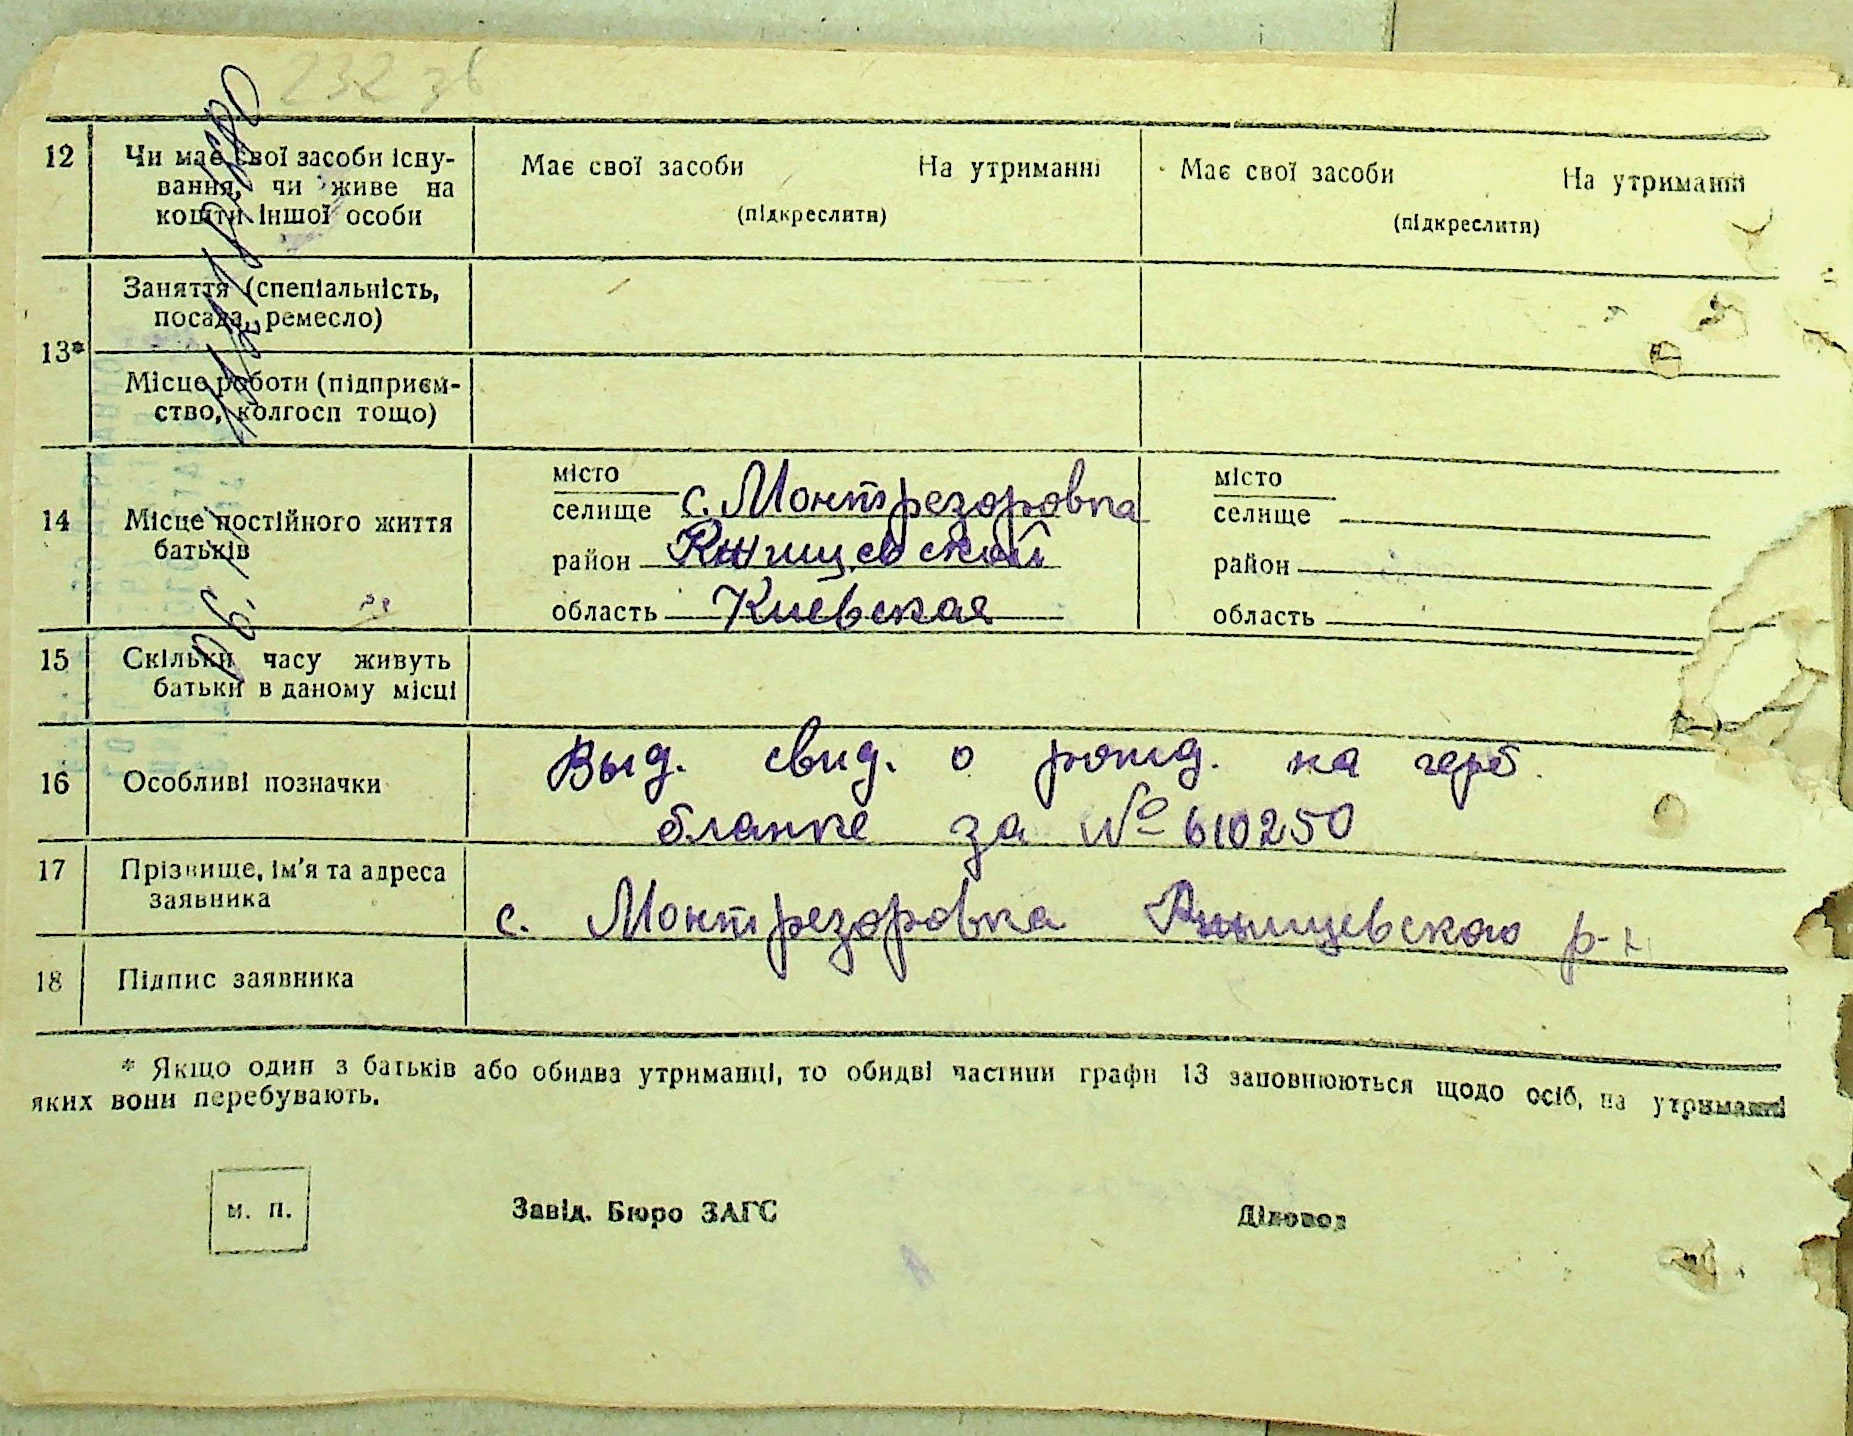 232 зв
12
Чи має свої засоби існу-
вання, чи живе на
кошти іншої особи
Має свої засоби На утриманні
(підкреслити)
Має свої засоби На утриманні
(підкреслити)
13*
Заняття (спеціальність,
посада, ремесло)
Місце роботи (підприєм-
ство, колгосп тощо)
14
Місце постійного життя
батьків
місто
селище с. Монтрезоровка
район Ржищевской
область Киевская
місто
селище
район
область
15
Скільки часу живуть
батьки в даному місці
16
Особливі позначки
Выд. свид. о рожд. на герб.
бланке за № 610250
17
Прізвище, ім'я та адреса
заявника
с. Монтрезоровка Ржищевского р-н
18
Підпис заявника
* Якщо один з батьків або обидва утриманці, то обидві частини графи 13 заповнюються щодо осіб, на утриманні
яких вони перебувають.
м. п.
Завід. Бюро ЗАГС
Діловод